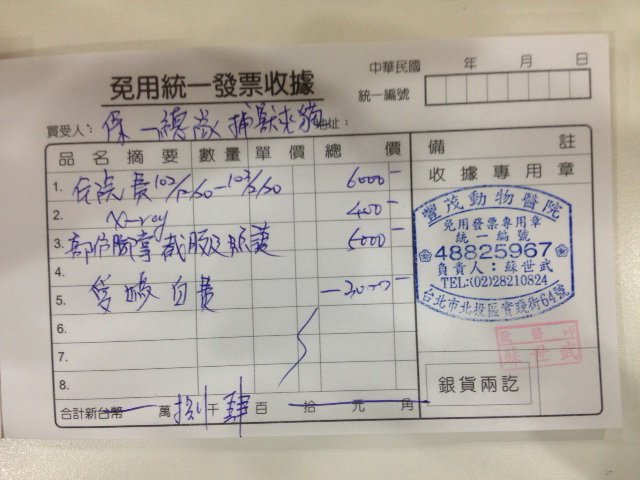 免用統一發票收據
中華民國 年 月 日
統一編號
買受人: 保 地址:
品名摘要 數量 單價 總價 備註
收據專用章
1. 住院費 6000-
2. X-ray 400-
3. 5000-
4.
5. 自費 -3000-
6.
7.
8.
合計新台幣 萬 捌 千 肆 百 拾 元 角
豐茂動物醫院
免用發票專用章
統一編號
48825967
負責人:蘇世武
TEL:(02)28210824
台北市北投區實踐街64號
獸醫師
蘇世武
銀貨兩訖